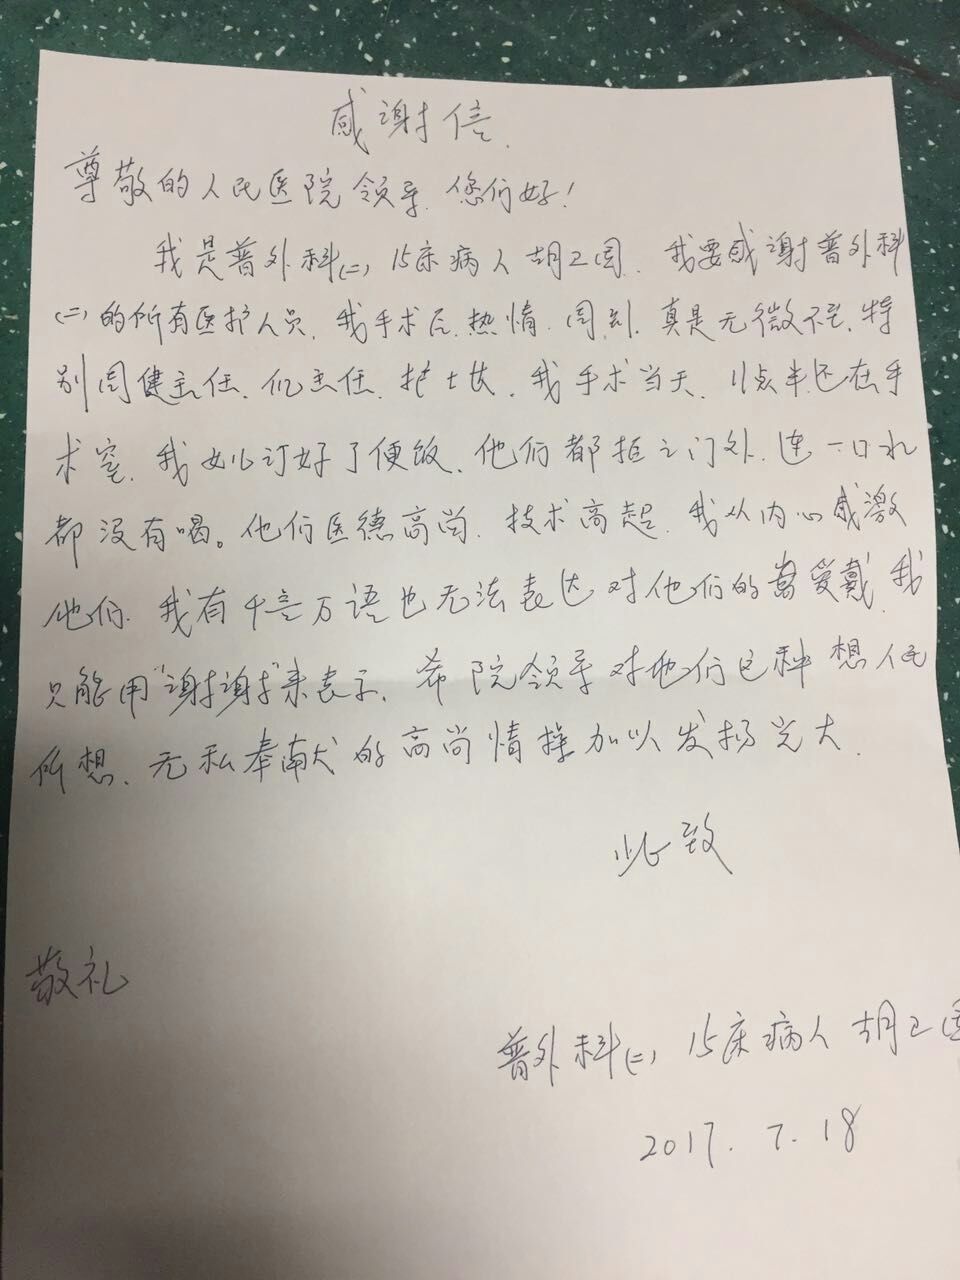 感谢信.
尊敬的人民医院领导.您们好!
我是普外科(二)15床病人胡卫国.我要感谢普外科
(二)的所有医护人员.我手术后.热情.周到.真是无微不至.特
别周健主任.主任.护士.我手术当天.11点半还在手
术室.我女儿订好了便饭.他们都拒之门外.连一口水
都没有喝。他们医德高尚.技术高超.我从内心感激
他们.我有千言万语也无法表达对他们的爱戴.我
只能用"谢谢"来表示.希院领导对他们这种想人民
所想.无私奉献的高尚情操加以发扬光大.
此致
敬礼
普外科(二)15床病人胡卫国
2017.7.18